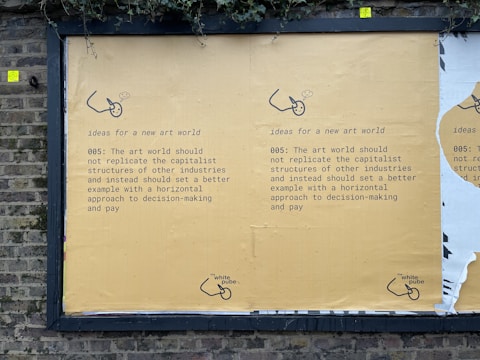 ideas for a new art world
005: The art world should
not replicate the capitalist
structures of other industries
and instead should set a better
example with a horizontal
approach to decision-making
and pay
the white
pube
ideas for a new art world
005: The art world should
not replicate the capitalist
structures of other industries
and instead should set a better
example with a horizontal
approach to decision-making
and pay
the white
pube
ideas
005: T
not re